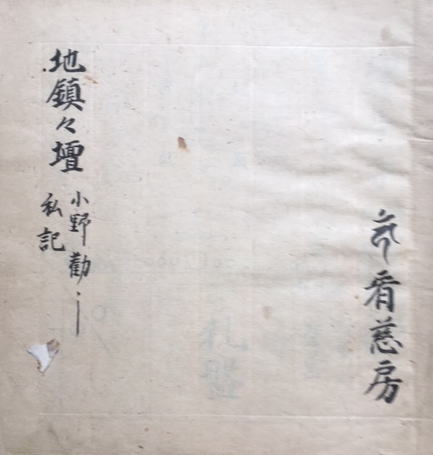 看慈房
地鎮々壇
小野勸
私記